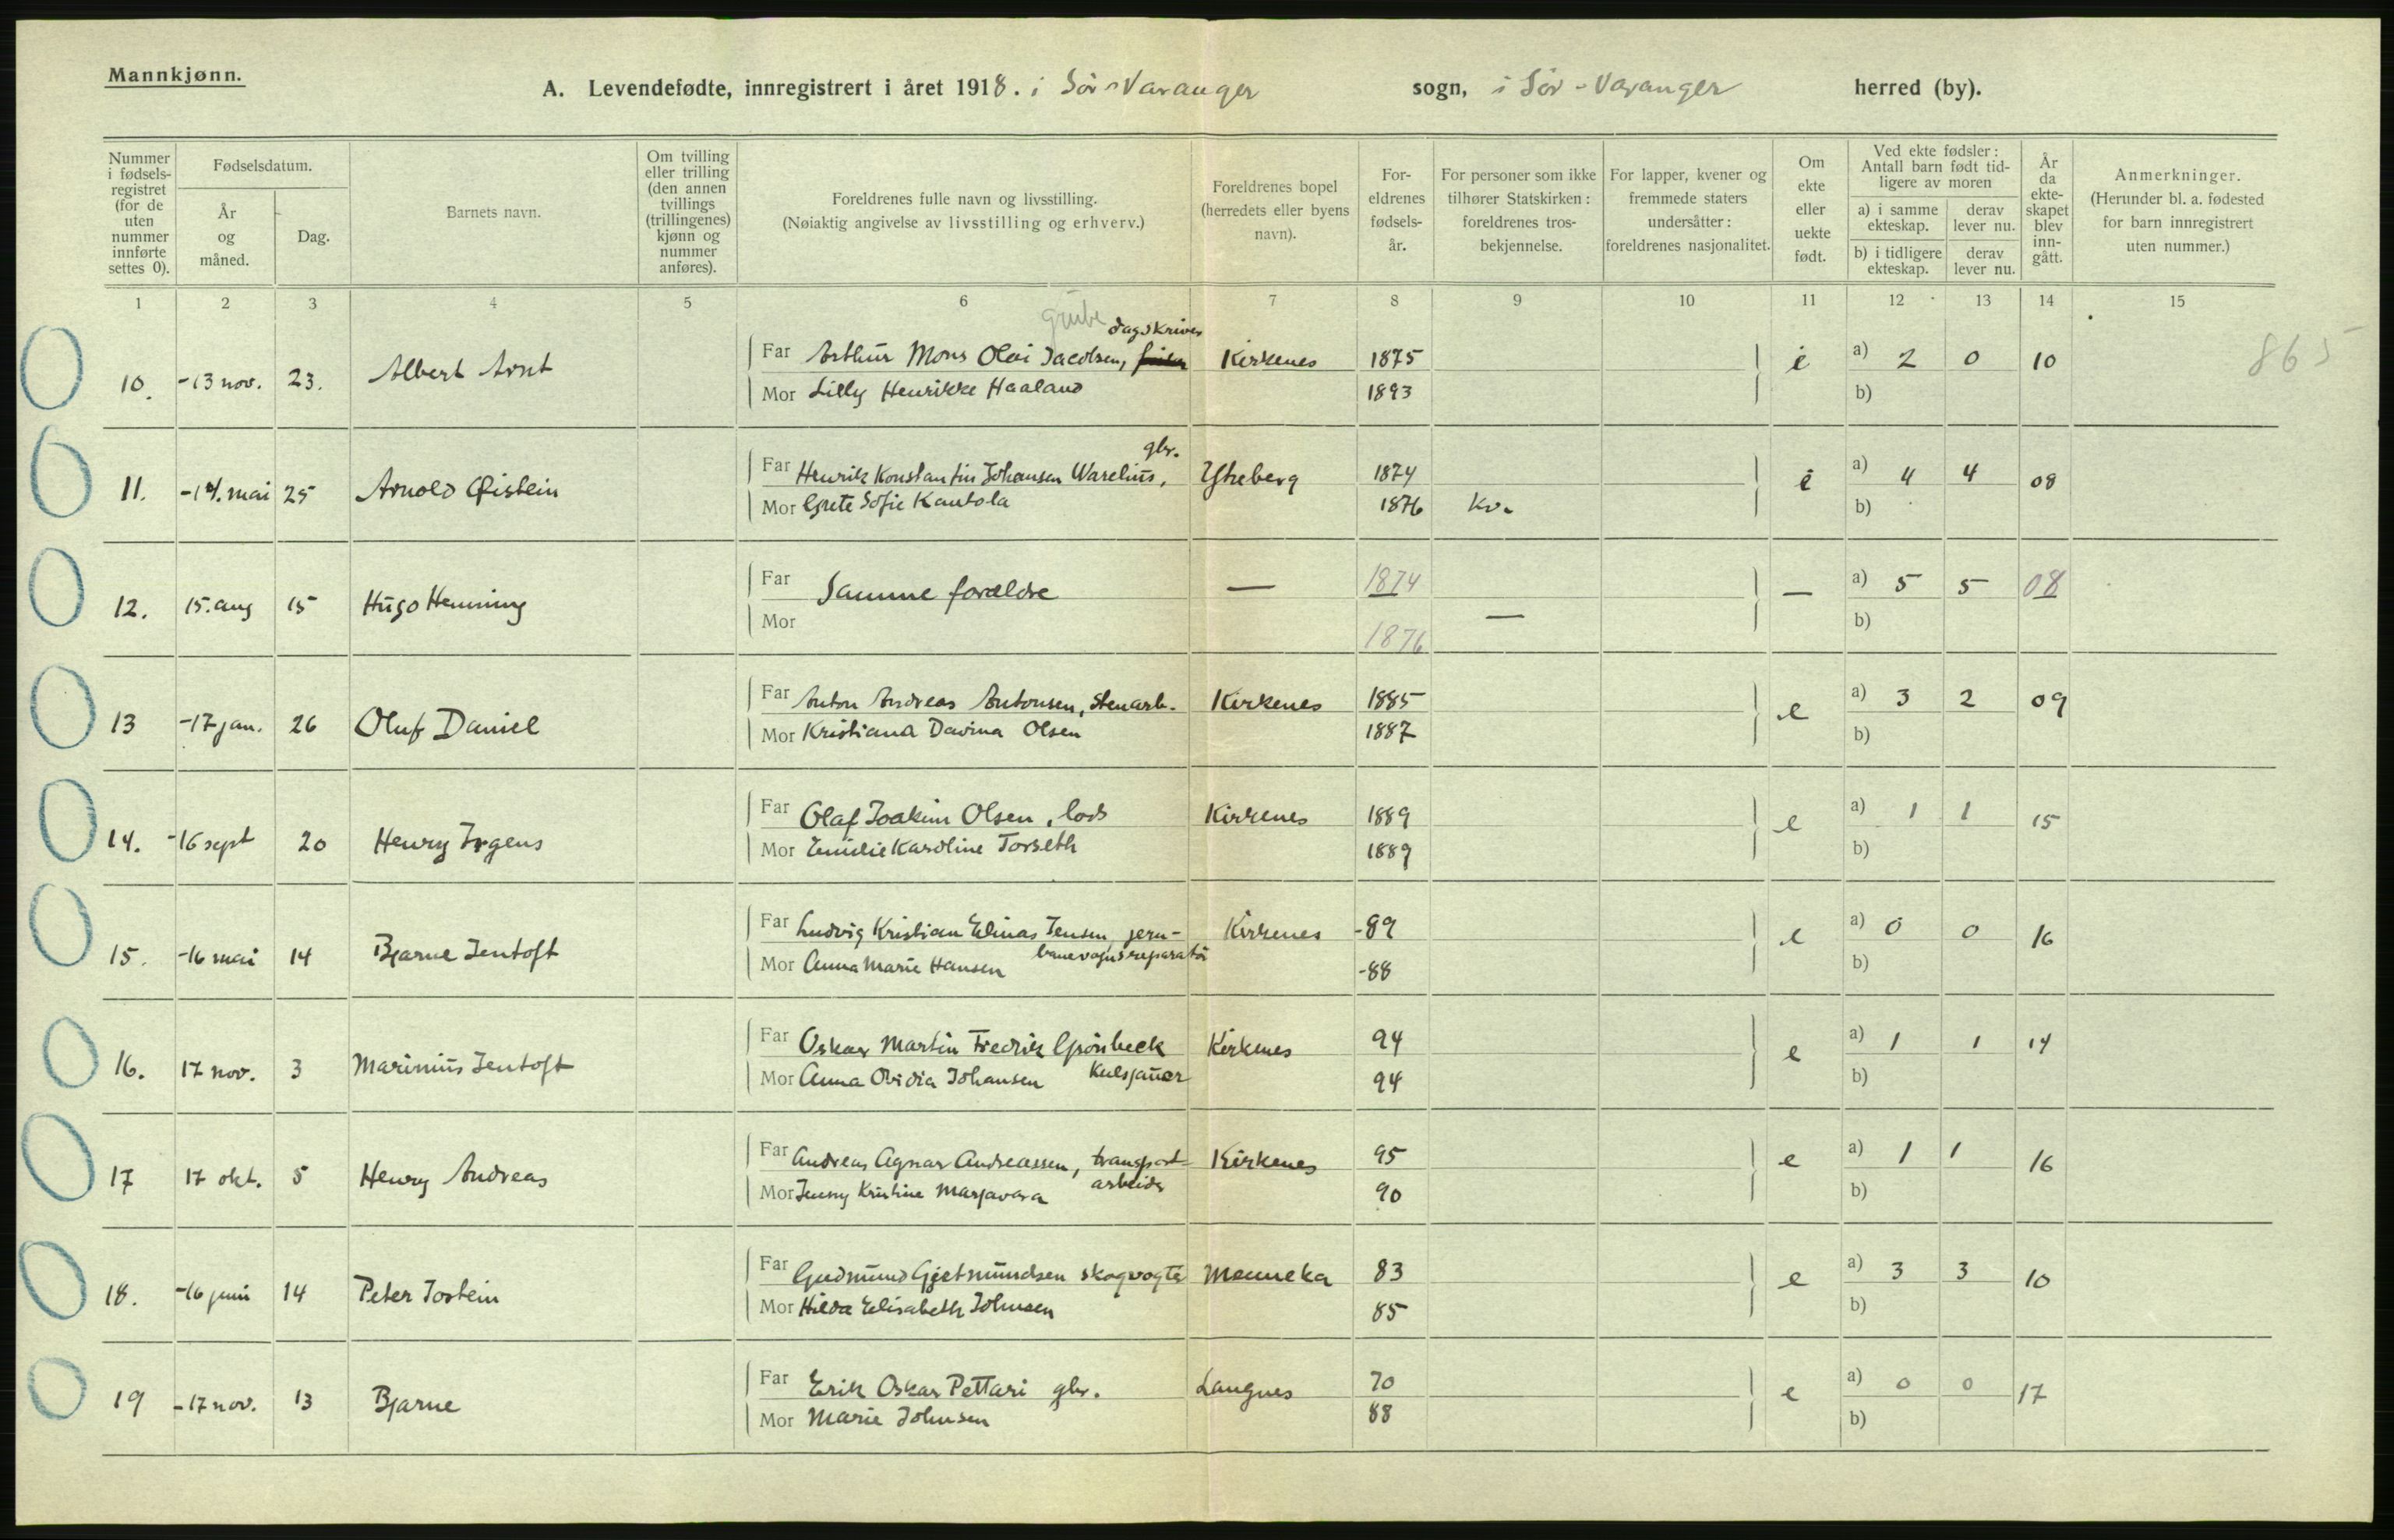 Mannkjønn.
A. Levendefødte, innregistrert i året 1918. i Sør-Varanger sogn, i Sør-Varanger herred (by).
Nummer i fødsels-registret (for de uten nummer innførte settes 0).
Fødselsdatum.
År og måned.
Dag.
Barnets navn.
Om tvilling eller trilling (den annen tvillings (trillingenes) kjønn og nummer anføres).
Foreldrenes fulle navn og livsstilling.
(Nøiaktig angivelse av livsstilling og erhverv.)
Foreldrenes bopel (herredets eller byens navn).
For-eldrenes fødsels-år.
For personer som ikke tilhører Statskirken: foreldrenes tros-bekjennelse.
For lapper, kvener og fremmede staters undersåtter: foreldrenes nasjonalitet.
Om ekte eller uekte født.
Ved ekte fødsler: Antall barn født tid-ligere av moren
a) i samme ekteskap.
derav lever nu.
b) i tidligere ekteskap.
derav lever nu.
År da ekte-skapet blev inn-gått.
Anmerkninger.
(Herunder bl. a. fødested for barn innregistrert uten nummer.)
1 2 3 4 5 6 7 8 9 10 11 12 13 14 15
grube dagskriver
10. -13 nov. 23. Albert Arnt Far Arthur Mons Olai Jacobsen, Kirkenes 1875 e a) 2 0 10 865
Mor Lilly Henrikke Haaland 1893 b)
gbr.
11. -14. mai 25 Arnold Øistein Far Henrik Konstantin Johansen Warelius, Ytreberg 1874 e a) 4 4 08
Mor Grete Sofie Kantola 1876 kv. b)
12. 15. aug 15 Hugo Henning Far Samme forældre — 1874 — a) 5 5 08
Mor 1876 — b)
13 -17 jan. 26 Oluf Daniel Far Anton Andreas Antonsen, stenarb. Kirkenes 1885 e a) 3 2 09
Mor Kristiana Davina Olsen 1887 b)
14. -16 sept 20 Henry Irgens Far Olaf Joakim Olsen, lods Kirkenes 1889 e a) 1 1 15
Mor Emilie Karoline Torseth 1889 b)
15. -16 mai 14 Bjarne Jentoft Far Ludvig Kristian Elinas Jensen, jern- Kirkenes -89 e a) 0 0 16
Mor Anna Marie Hansen banevognsreparatör -88 b)
16. 17 nov. 3 Marinius Jentoft Far Oskar Martin Fredrik Grönbeck Kirkenes 94 e a) 1 1 14
Mor Anna Ovidia Johansen Kulsjauer 94 b)
17 17 okt. 5 Henry Andreas Far Andreas Agnar Andreassen, transport- Kirkenes 95 e a) 1 1 16
Mor Jenny Kristine Marjavara arbeider 90 b)
18. -16 juni 14 Peter Jostein Far Gudmund Gjetmundsen skogvogter Menneka 83 e a) 3 3 10
Mor Hilda Elisabeth Johnsen 85 b)
19 -17 nov. 13 Bjarne Far Erik Oskar Pettari gbr. Langnes 70 e a) 0 0 17
Mor Marie Johnsen 88 b)